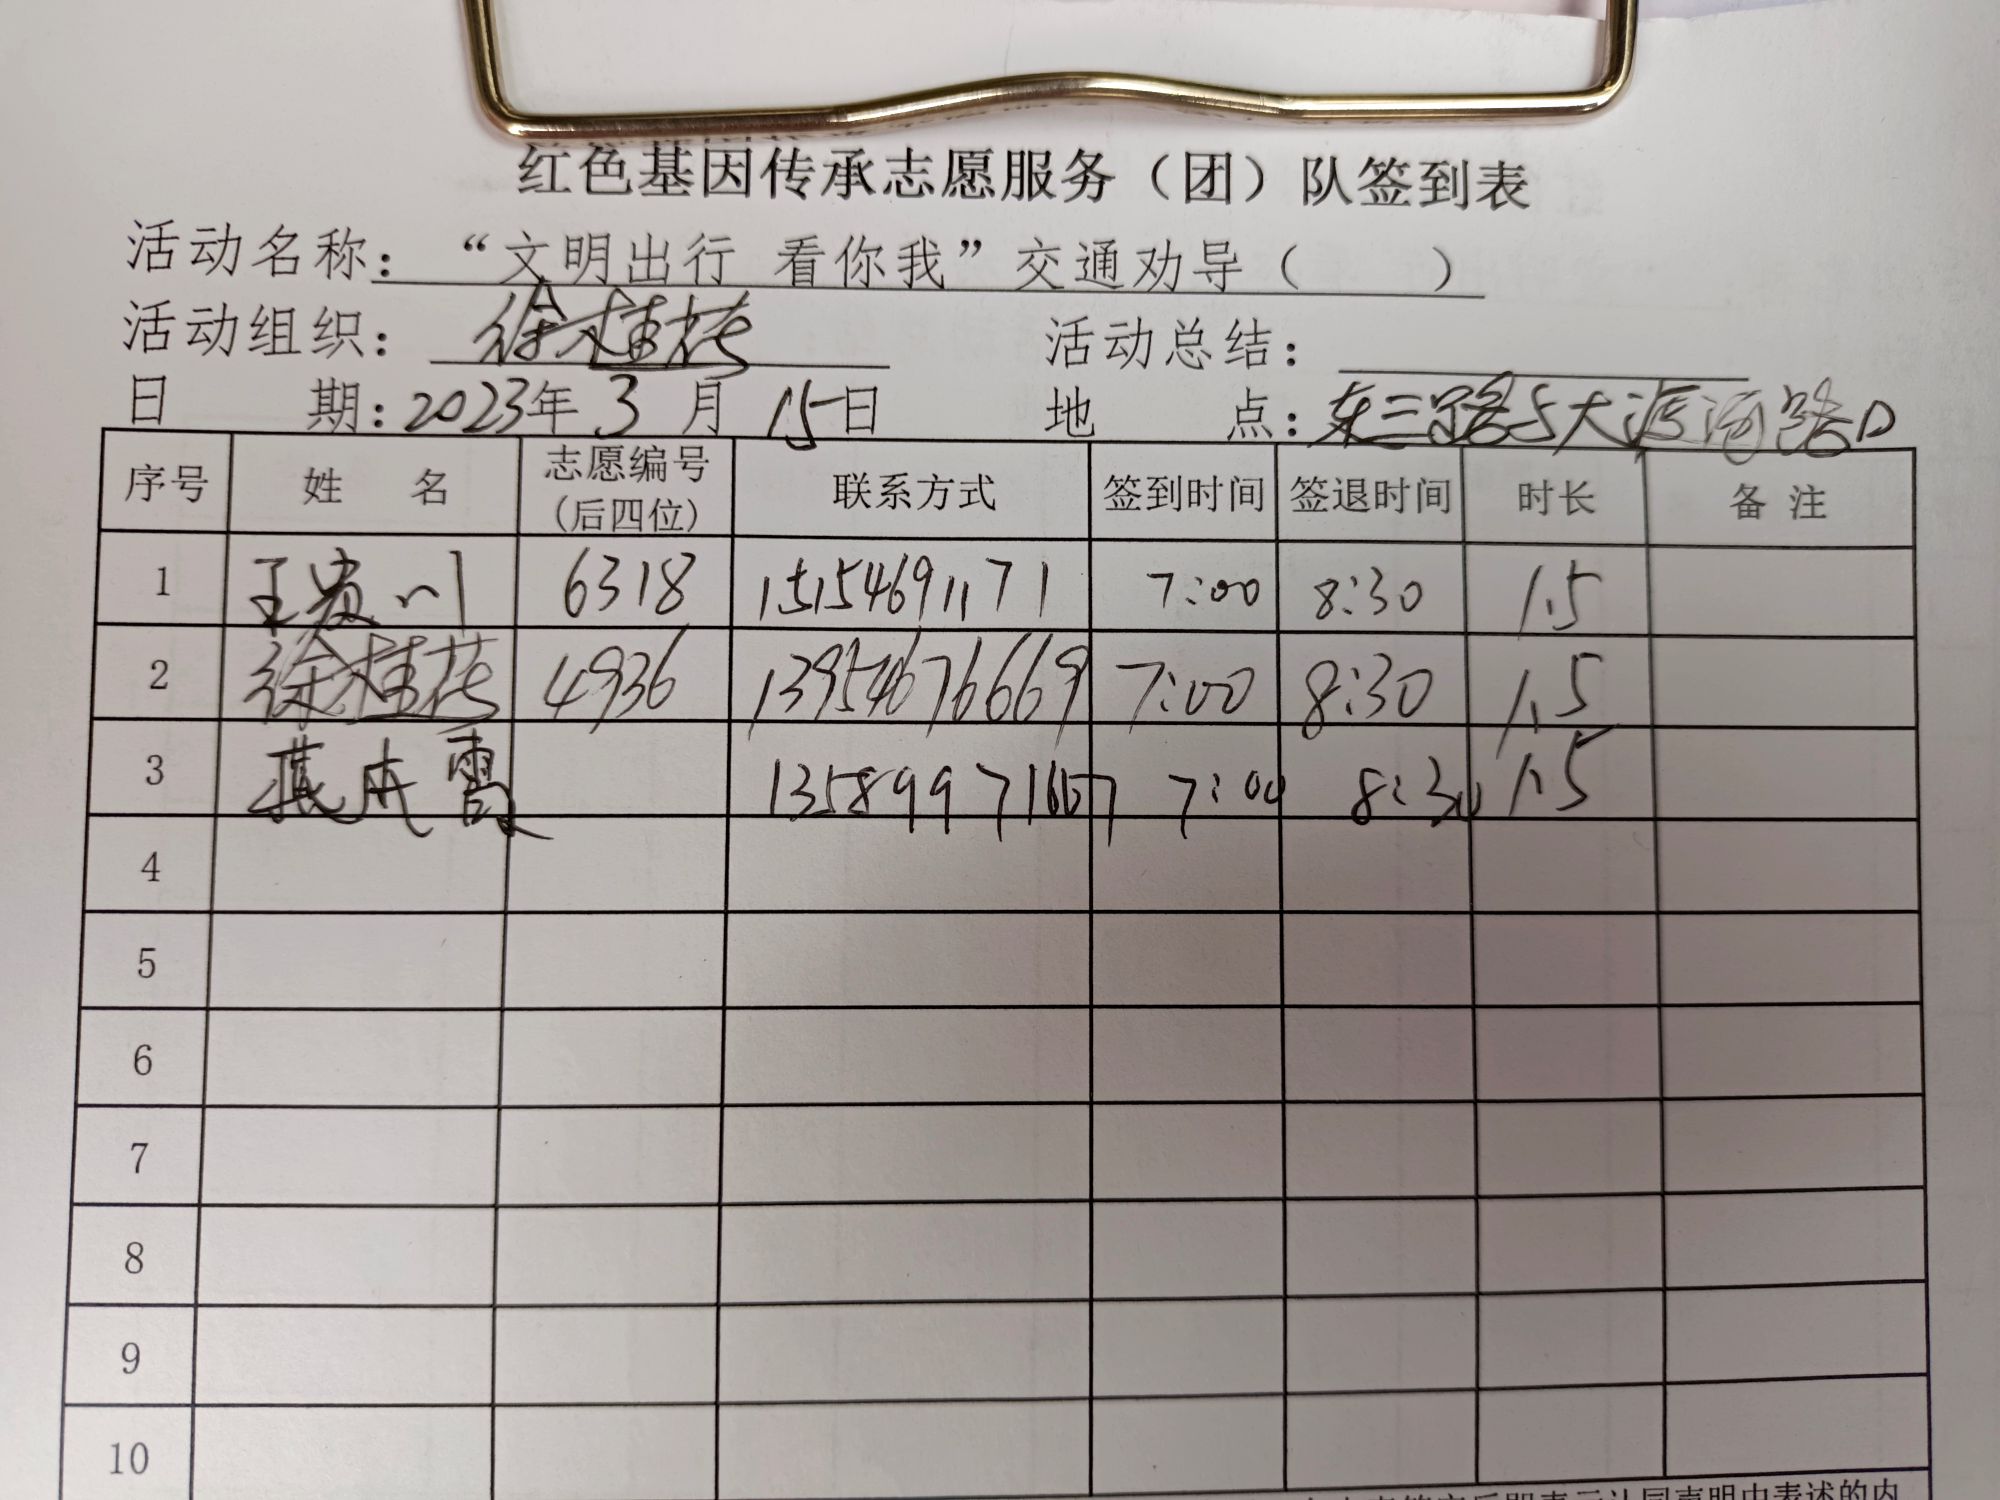 红色基因传承志愿服务（团）队签到表
活动名称：“文明出行 看你我”交通劝导（ ）
活动组织：徐桂花 活动总结：
日 期：2023年3月15日 地 点：东三路与大渡河路口
序号 姓 名 志愿编号（后四位） 联系方式 签到时间 签退时间 时长 备注
1 王贵川 6318 15154691171 7:00 8:30 1.5
2 徐桂花 4936 13954676669 7:00 8:30 1.5
3 本霞 7:00 8:30 1.5
4
5
6
7
8
9
10